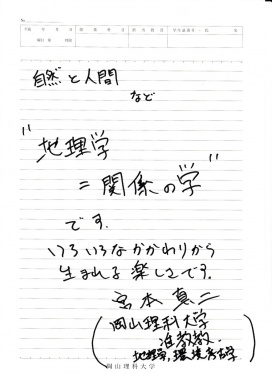 自然と人間
など
"地理学
=関係の学"
です.
いろいろなかかわりから
生まれる楽しさです.
宮本真二
(岡山理科大学
准教授.
地理学,環境考古学)
岡山理科大学